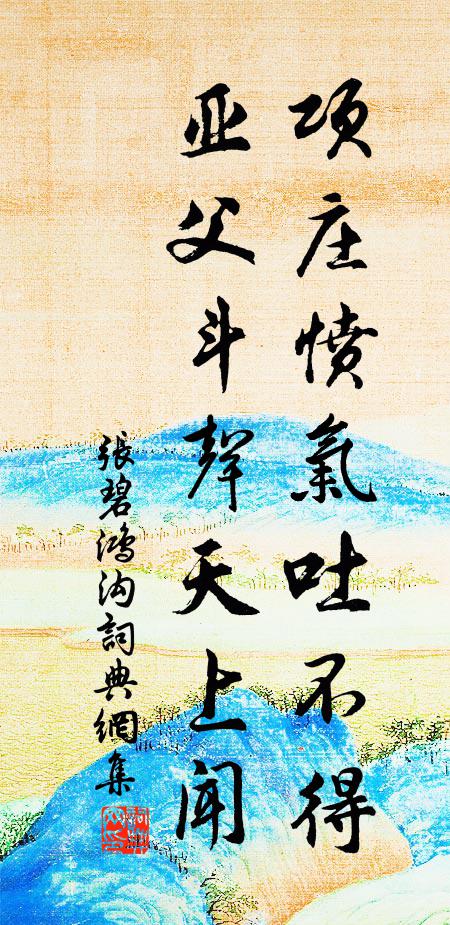 项庄愤氣吐不得
亚父斗聲天上闻
張碧鴻沟詞典網集